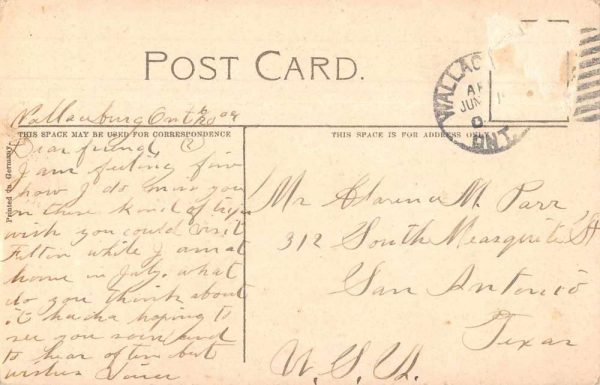 POST CARD.
WALLAC
JUN
ONT.
Wallaceburg Ont 09
THIS SPACE MAY BE USED FOR CORRESPONDENCE
THIS SPACE IS FOR ADDRESS ONLY
Printed in Germany.
Dear friend
I am feeling fine
how I do miss you
on these kind of trips
wish you could visit
while I am at
home in July. what
do you think about
it ha ha hoping to
see you soon and
to hear often best
wishes
Mr Clarence M. Parr
312 South Measquite St
San Antonio
Texas
U.S.A.